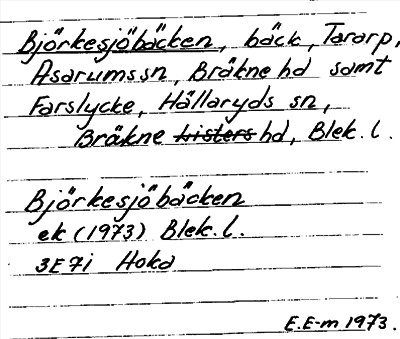 Björkesjöbäcken, bäck, Tararp,
Asarums sn, Bräkne hd samt
Farslycke, Hällaryds sn,
Bräkne Listers hd, Blek. l.
Björkesjöbäcken
ek (1973) Blek. l.
3E7i Hoka
E.E-m 1973.